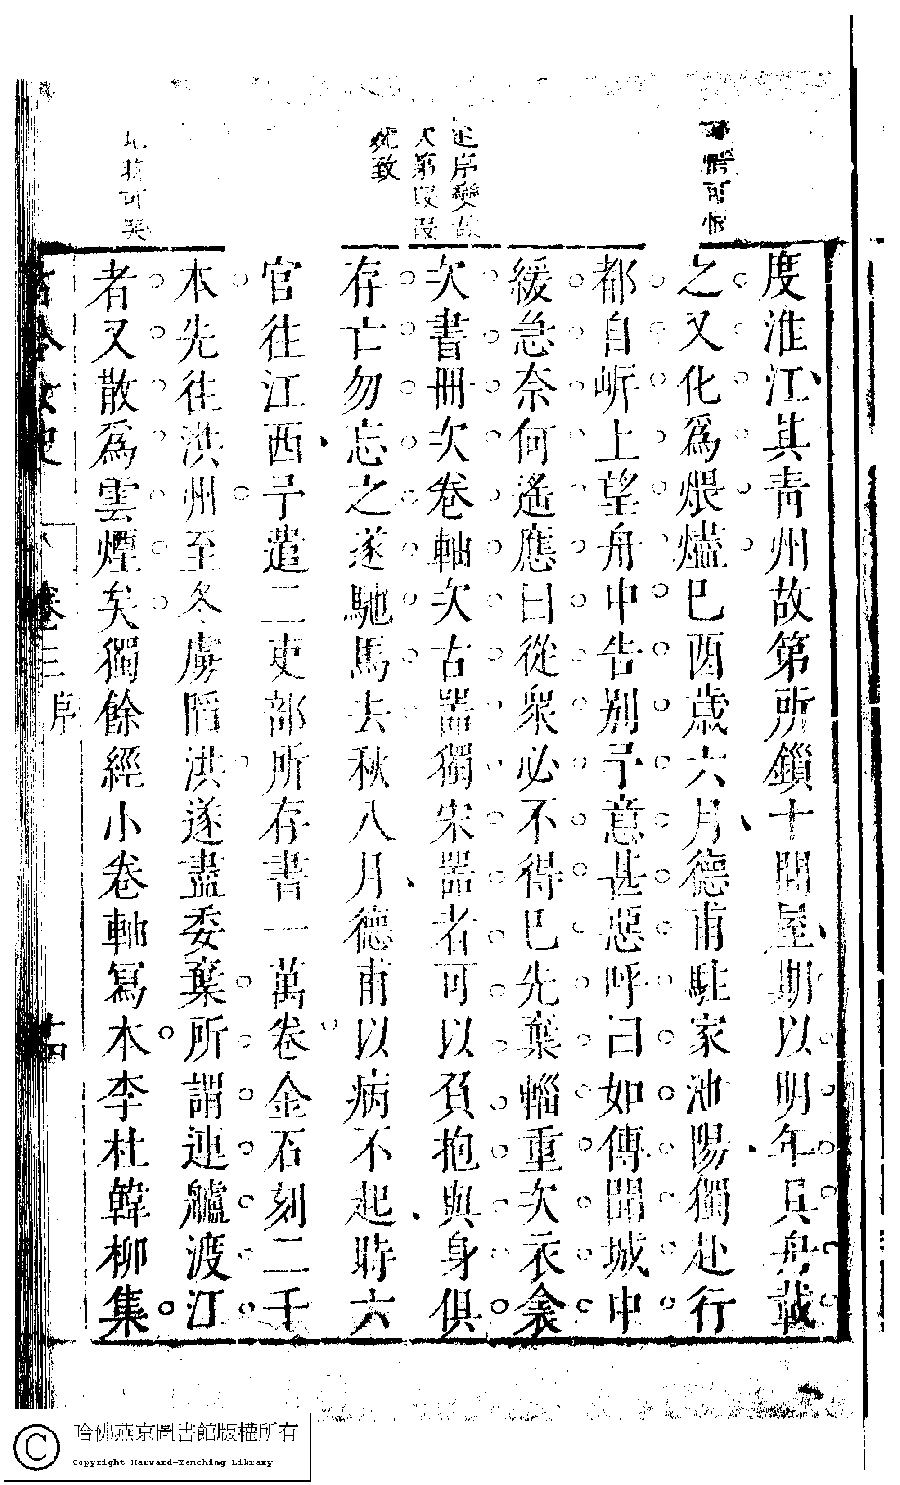 可恨
序變故
第段段
致
可哭
度淮江其青州故第所鎖十間屋期以明年具舟載
之又化爲煨燼巳酉歲六月德甫駐家池陽獨赴行
都自岸上望舟中告別予意甚惡呼曰如傳聞城中
緩急奈何遙應曰從衆必不得已先棄輜重次衣衾
次書冊次卷軸次古器獨宋器者可以負抱與身俱
存亡勿忘之遂馳馬去秋八月德甫以病不起時六
官往江西予遣二吏部所存書一萬卷金石刻二千
本先往洪州至冬虜陷洪遂盡委棄所謂連艫渡江
者又散爲雲煙矣獨餘經小卷軸寫本李杜韓柳集
古今女史 卷三 序 十四
哈佛燕京圖書館版權所有
Copyright Harvard-Yenching Library